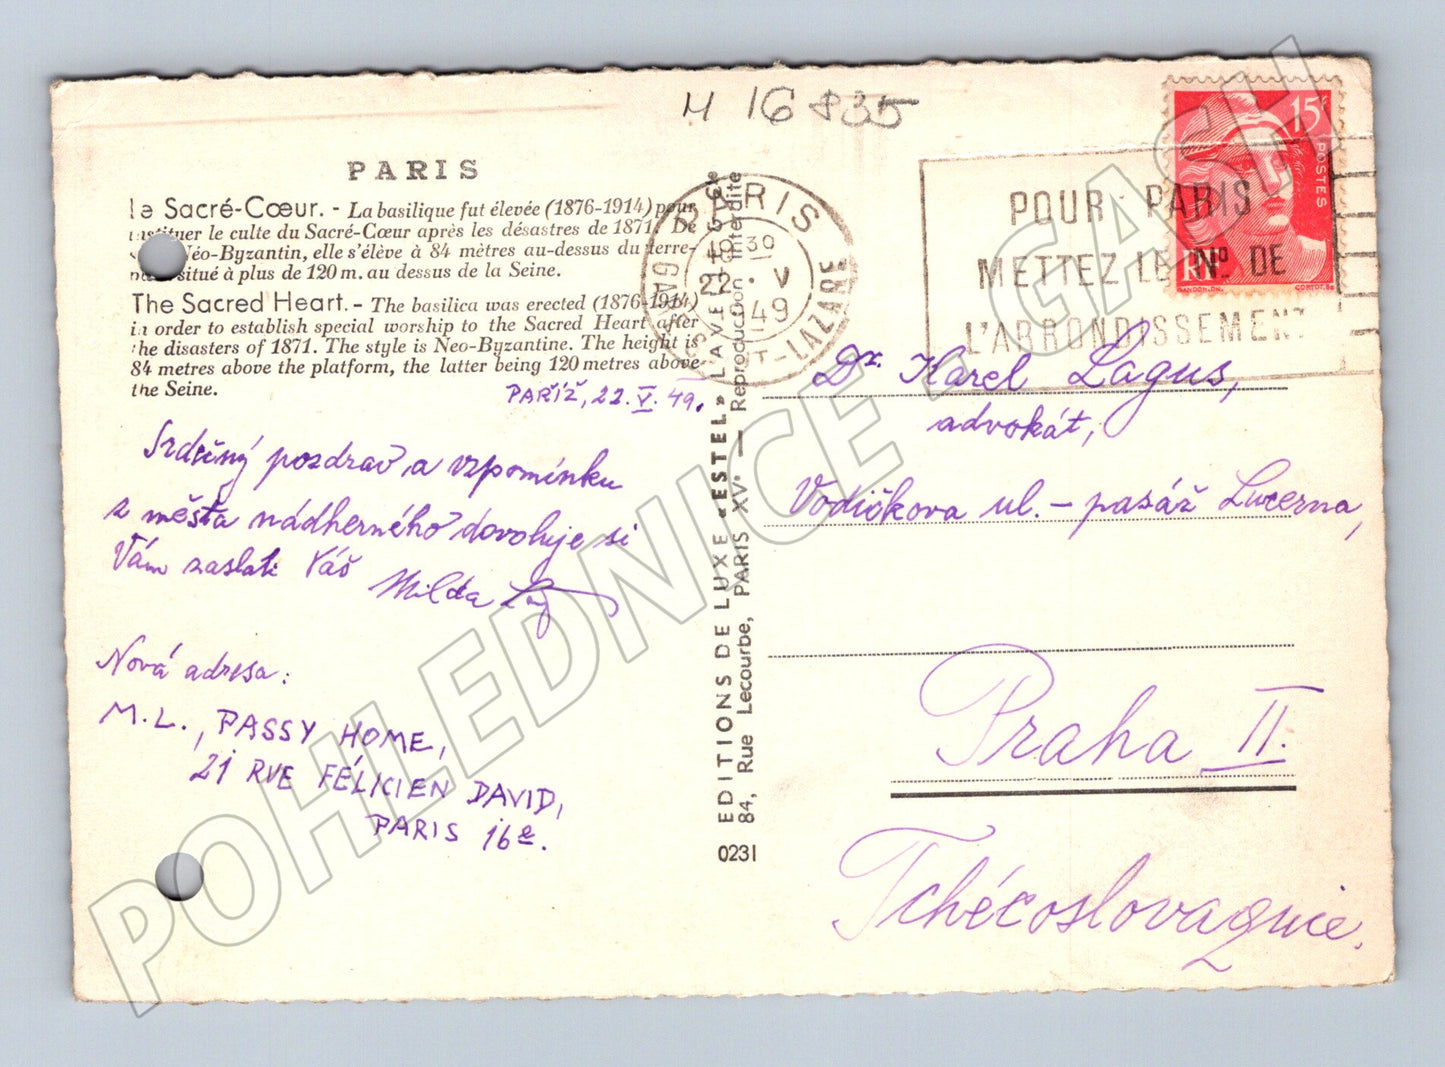 M 16 835
PARIS
Le Sacré-Cœur. - La basilique fut élevée (1876-1914) pour
instituer le culte du Sacré-Cœur après les désastres de 1871. De
Néo-Byzantin, elle s'élève à 84 mètres au-dessus du terre-
situé à plus de 120 m. au dessus de la Seine.
The Sacred Heart. - The basilica was erected (1876-1914)
in order to establish special worship to the Sacred Heart after
the disasters of 1871. The style is Neo-Byzantine. The height is
84 metres above the platform, the latter being 120 metres above
the Seine.
PAŘÍŽ, 22. V. 49.
Srdečný pozdrav a vzpomínku
z města nádherného dovoluje si
Vám zaslati Váš Milda
Nová adresa:
M.L., PASSY HOME,
21 RUE FÉLICIEN DAVID,
PARIS 16e.
EDITIONS DE LUXE «ESTEL»
84, Rue Lecourbe, PARIS XVe — Reproduction Interdite
0231
PARIS
30
22 · V
49
GARE ST-LAZARE
POUR PARIS
METTEZ LE No DE
L'ARRONDISSEMENT
15F
POSTES
RF
GANDON, DEL.
Dr. Karel Lagus,
advokát,
Vodičkova ul. - pasáž Lucerna,
Praha II.
Tchécoslovaquie.
POHLEDNICE - GASH